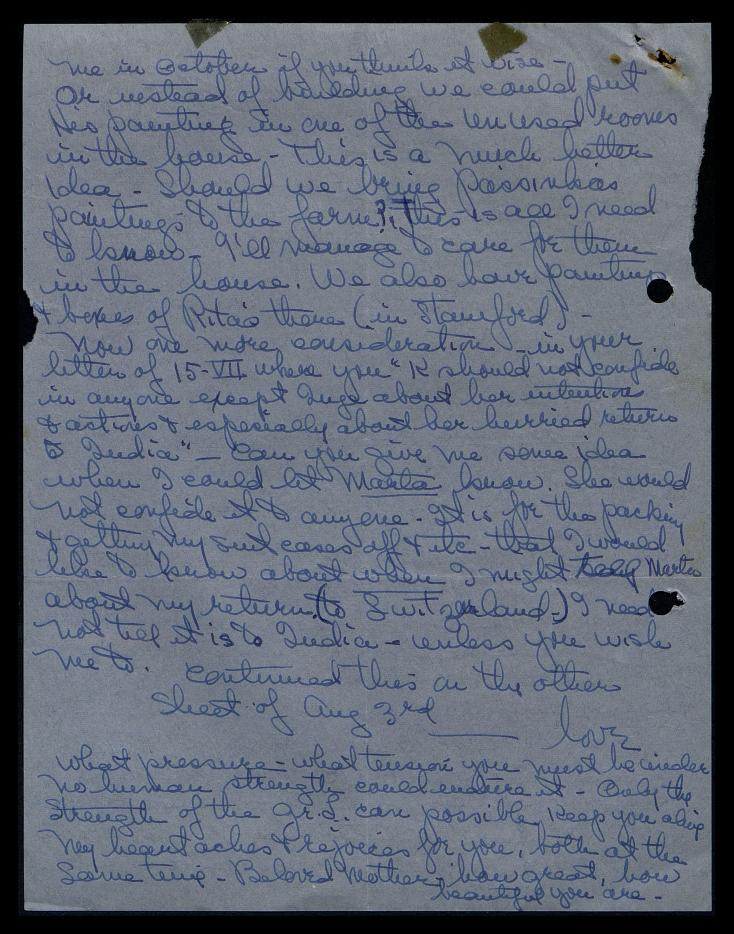 me in October if you think it wise -
Or instead of building we could put
his painting in one of the unused rooms
in the house - This is a much better
idea - Should we bring
paintings to the farm? This is all I need
to know - I'll manage to care for them
in the house. We also have paintings
& boxes of Rita's there (in Stamford) -
Now one more consideration - in your
letter of 15-VII where you "R should not confide
in anyone except Inge about her intentions
& actions & especially about her hurried return
to India" - Can you give me some idea
when I could let Marta know. She would
not confide it to anyone - It is for the packing
& getting my suit cases off & etc - that I would
like to know about when I might Marta
about my return (to Switzerland -) I need
not tell it is to India - unless you wish
me to.
continued this on the other
Sheet of Aug 3rd
love
What pressure - what tension you must be under
no human strength could endure it - Only the
strength of the Gr. L. can possible keep you alive
My heart aches & rejoices for you, both at the
same time - Beloved Mother - how great, how
beautiful you are -